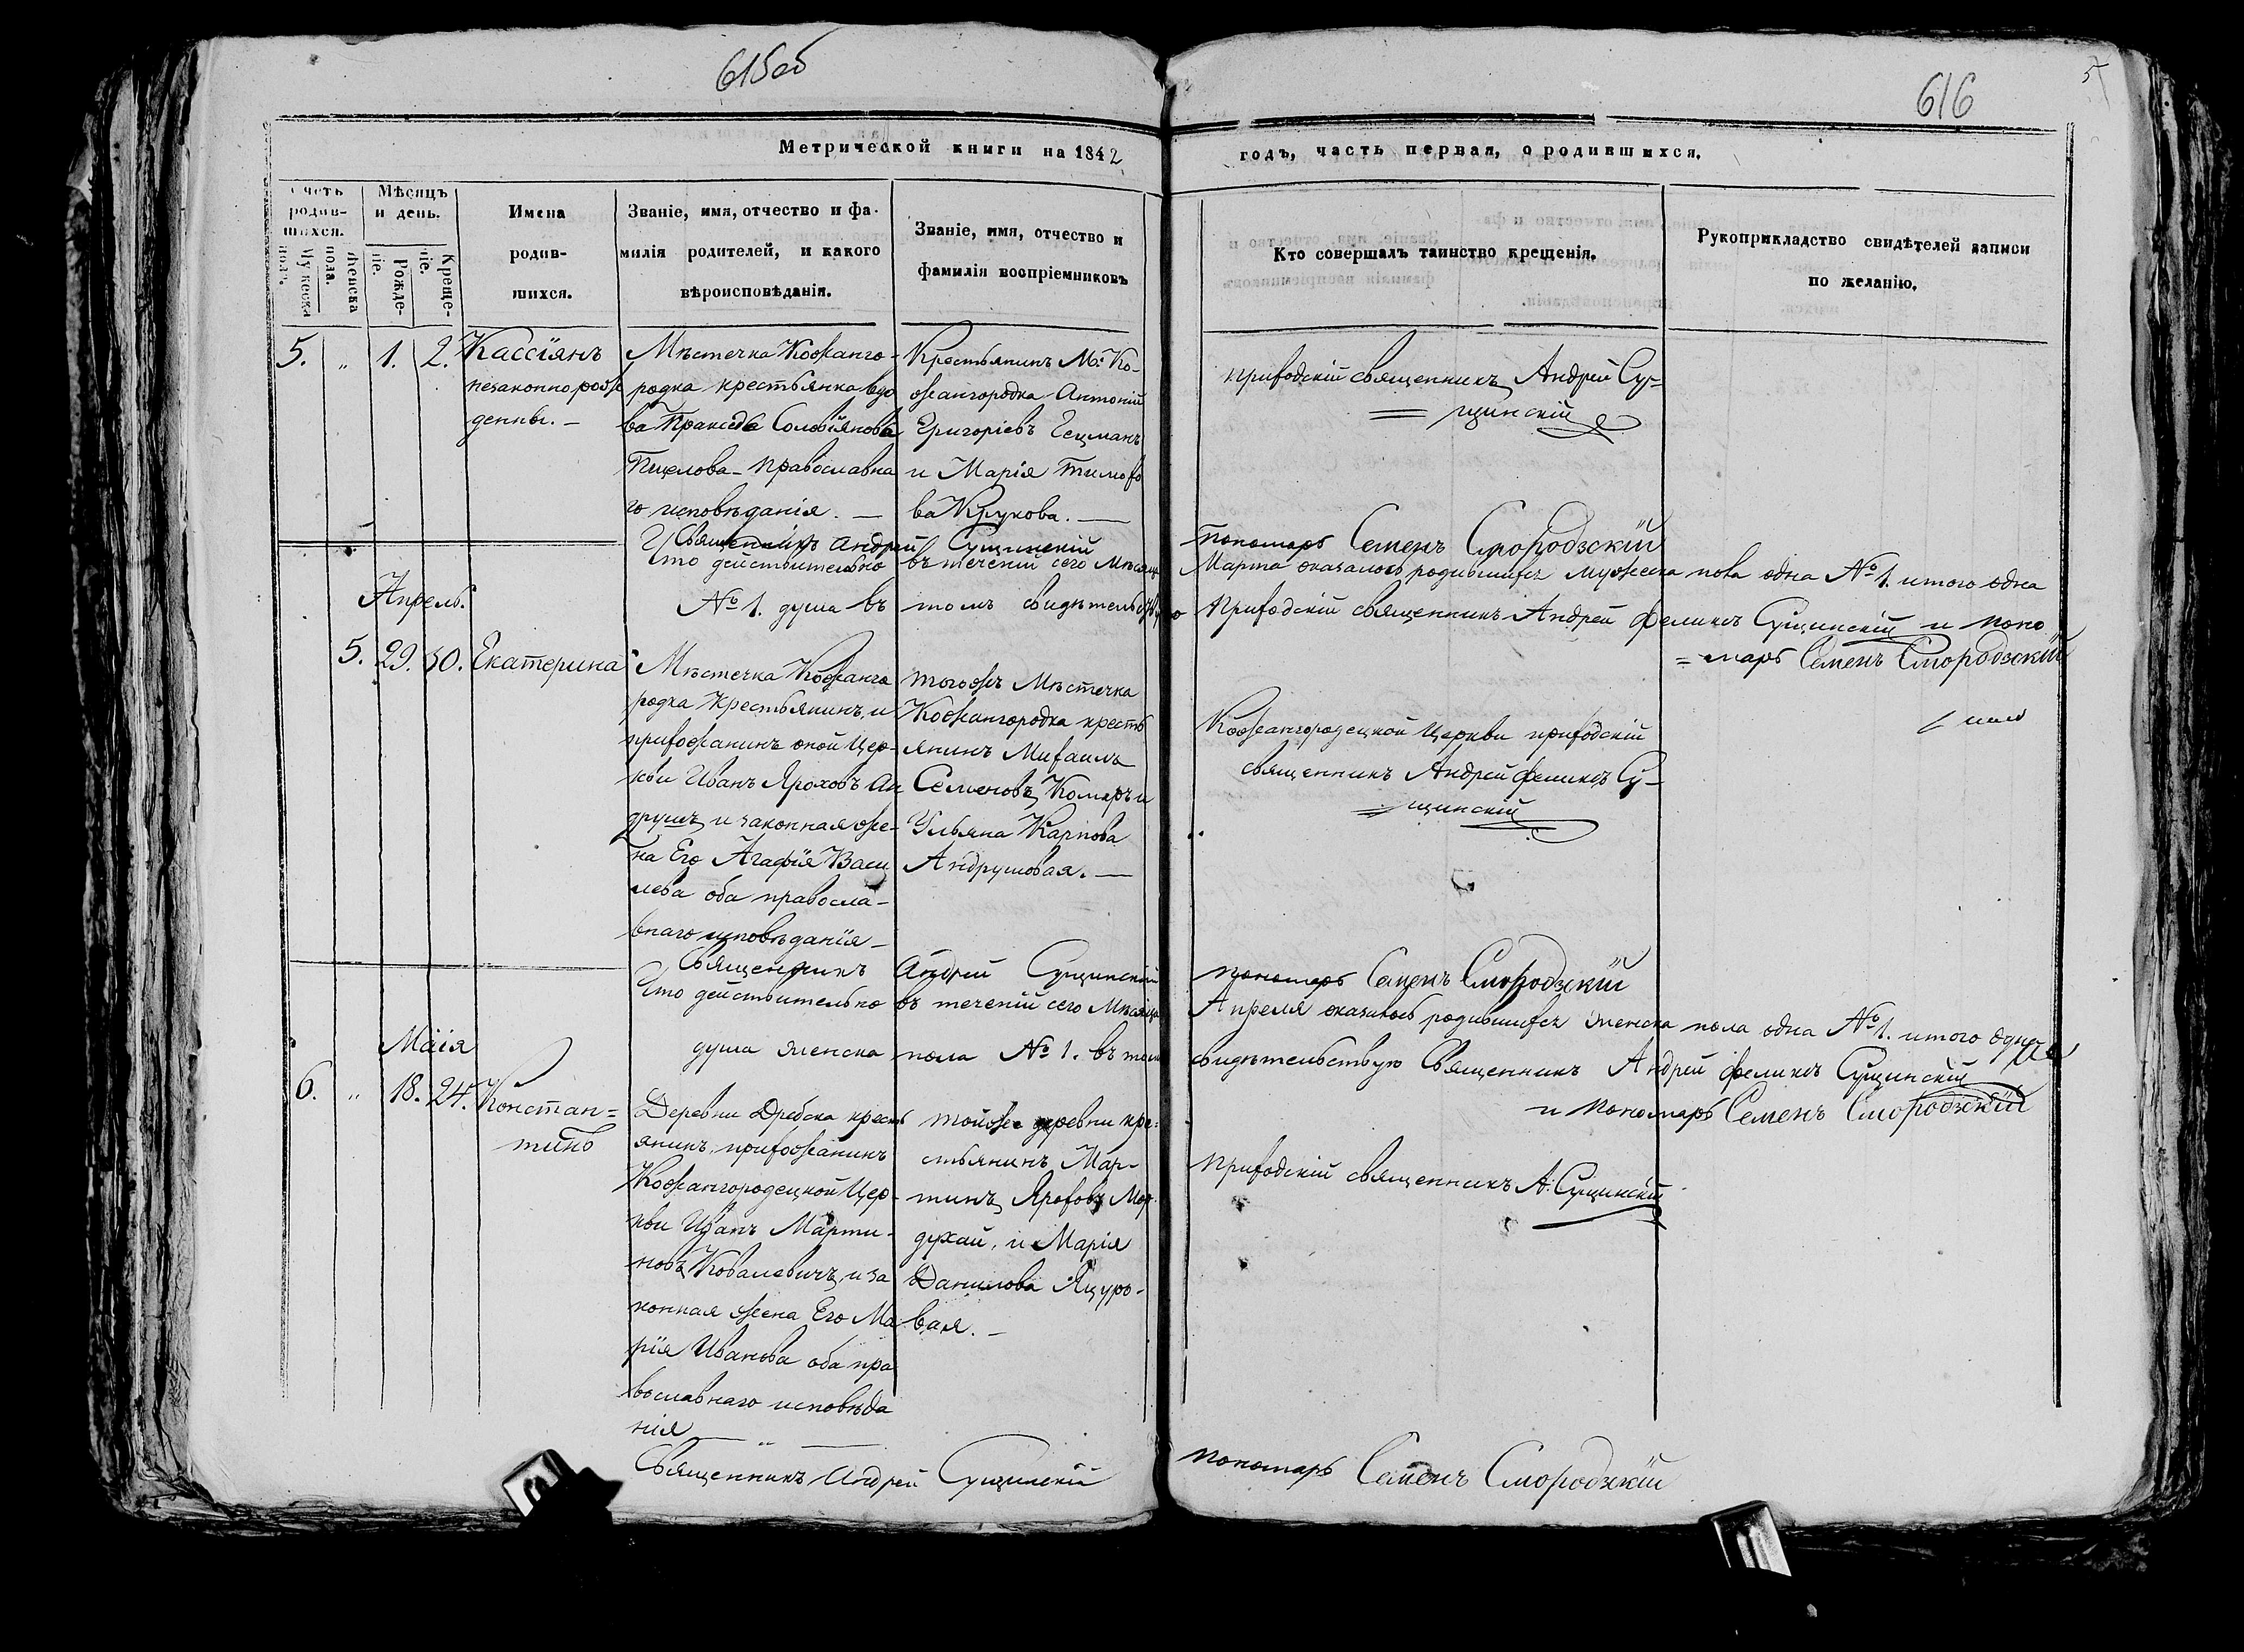 615об
616
5
Метрической книги на 1842
годъ, часть первая, о родившихся.
Счетъ родив-шихся.
Мужеска пола.
Женска пола.
Мѣсяцъ и день.
Рожде-ніе.
Креще-ніе.
Имена
родив-
шихся.
Званіе, имя, отчество и фа-
милія родителей, и какого
вѣроисповѣданія.
Званіе, имя, отчество и
фамилія воспріемниковъ
Кто совершалъ таинство крещенія.
Рукоприкладство свидѣтелей записи
по желанію.
5. „ 1. 2. Кассіянъ
незаконно рож
денны. —
Мѣстечка Кожанго-
родка крестьянка вдо
ва Праксeда Соловіянова
Пщелова - православна
го исповѣданія. —
Крестьянинъ М: Ко-
жангородка Антоній
Григоріевъ Гецманъ
и Марія Тимофе
ва Крукова. —
приходскій священникъ Андрей Су-
щинскій
Священникъ Андрей Сущинскій
пономарь Семенъ Смородзскій
Что действительно въ теченіи сего Мѣсяца Марта оказалось родившихся мужеска пола одна № 1. итого одна
№ 1. душа въ томъ свидѣтельствую Приходскій священникъ Андрей Феликсъ Сущинскій и поно
= марь Семенъ Смородзскій
Апрель.
5. 29. 30. Екатерина
Мѣстечка Кожанго
родка Крестьянинъ, и
прихожанинъ оной Цер-
кви Иванъ Ярохов Ан
друшъ и законная же-
на Его Агафія Васи
лева оба правосла-
внаго исповѣданія —
тогожъ Мѣстечка
Кожангородка кресть
янинъ Михаилъ
Семеновъ Комаръ и
Ульяна Карпова
Андрушовая. —
Кожангородецкой Церкви приходскій
священникъ Андрей Феликсъ Су-
щинскій
Священникъ Андрей Сущинскій
пономарь Семенъ Смородзскій
Что действительно въ теченіи сего Мѣсяца Апреля оказалось родившихся женска пола одна № 1. итого одна
душа женска пола № 1. въ томъ свидѣтельствую Священникъ Андрей Феликсъ Сущинскій
и пономарь Семенъ Смородзскій
Маія
6. „ 18. 24. Констан=
тинъ
Деревни Дребска кресть
янинъ, прихожанинъ
Кожангородецкой Цер-
кви Иванъ Марти-
новъ Ковалевичъ, и за
конная жена Его Ма
рія Иванова оба пра
вославнаго исповѣда
нія
тойже деревни кре-
стьянинъ Мар-
тинъ Яроховъ Мор
духай, и Марія
Данилова Яцуро-
вая. —
Приходскій священникъ А: Сущинскій
Священникъ Андрей Сущинскій
пономарь Семенъ Смородзскій